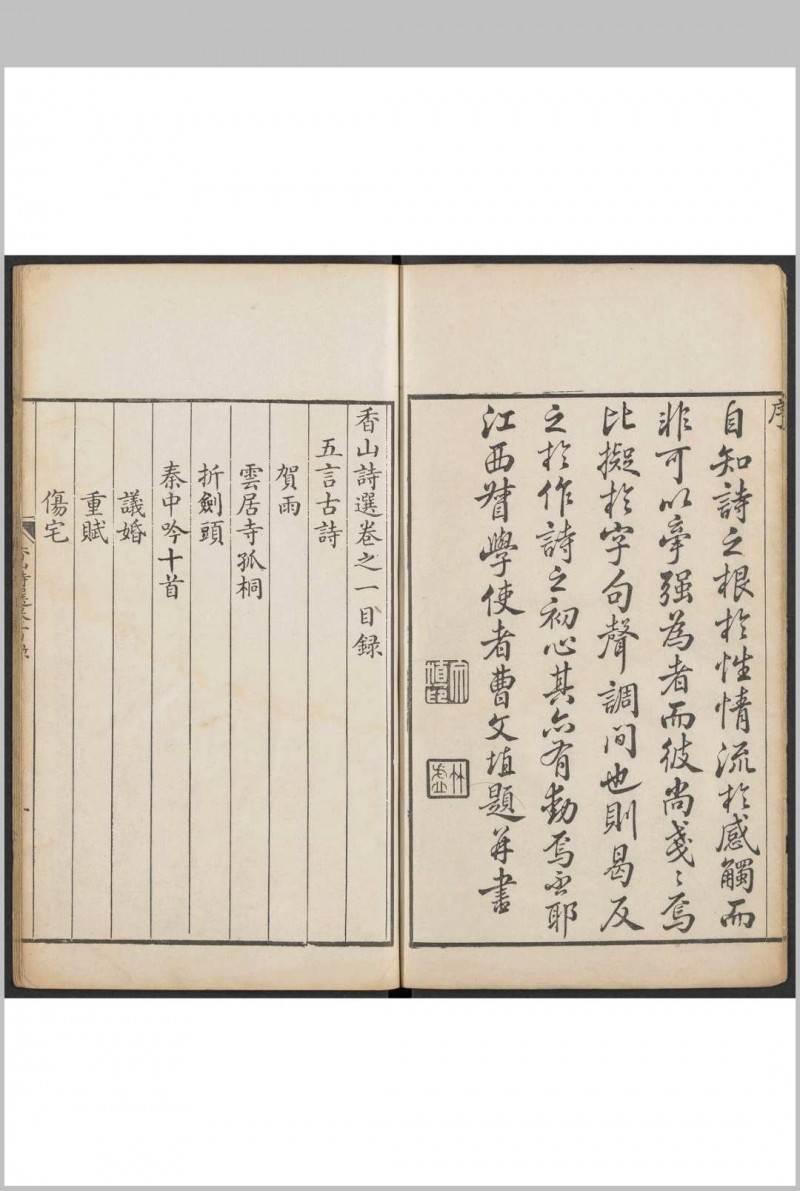 序
自知詩之根於性情流於感觸而
非可以牽强為者而彼尚戔〻焉
比擬於字句聲調间也則曷反
之於作詩之初心其亦有動焉否耶
江西督學使者曹文埴題并書
香山詩選卷之一目録
五言古詩
賀雨
雲居寺孤桐
折劍頭
秦中吟十首
議婚
重賦
傷宅